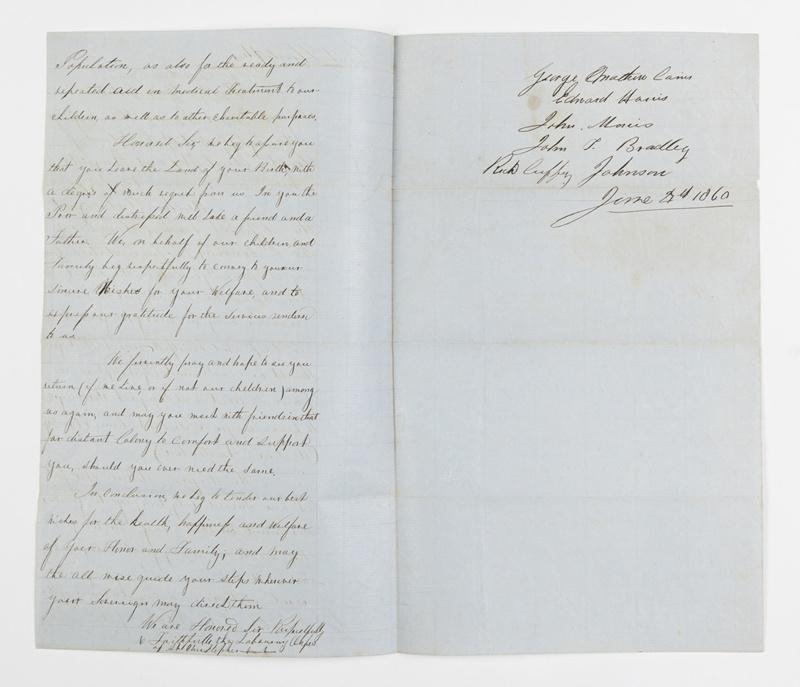 Population, as also for the ready and
repeated aid in Medical Treatment to our
children, as well as to other Charitable purposes.
Honored Sir we beg to assure you
that you leave the Land of your Birth, with
a degree of much regret from us. In you the
Poor and distressed will lose a friend and a
Father. We, on behalf of our children, and
Family beg respectfully to convey to you our
sincere Wishes for your Welfare, and to
express our gratitude for the services rendered
to us.
We fervently pray and hope to see you
return (if we live, or if not our children) among
us again, and may you meet with friends in that
far distant Colony to comfort and support
you, should you ever need the same.
In conclusion, we beg to tender our best
wishes for the health, happiness, and welfare
of your Honor and Family, and may
the all wise guide your steps wherever
your Sovereign may direct them
We are Honored Sir Respectfully
& Faithfully the Labouring Classes
of
George Mathew
Edward Harris
John Morris
John T. Bradley
Richd Cuppy Johnson
June 1860